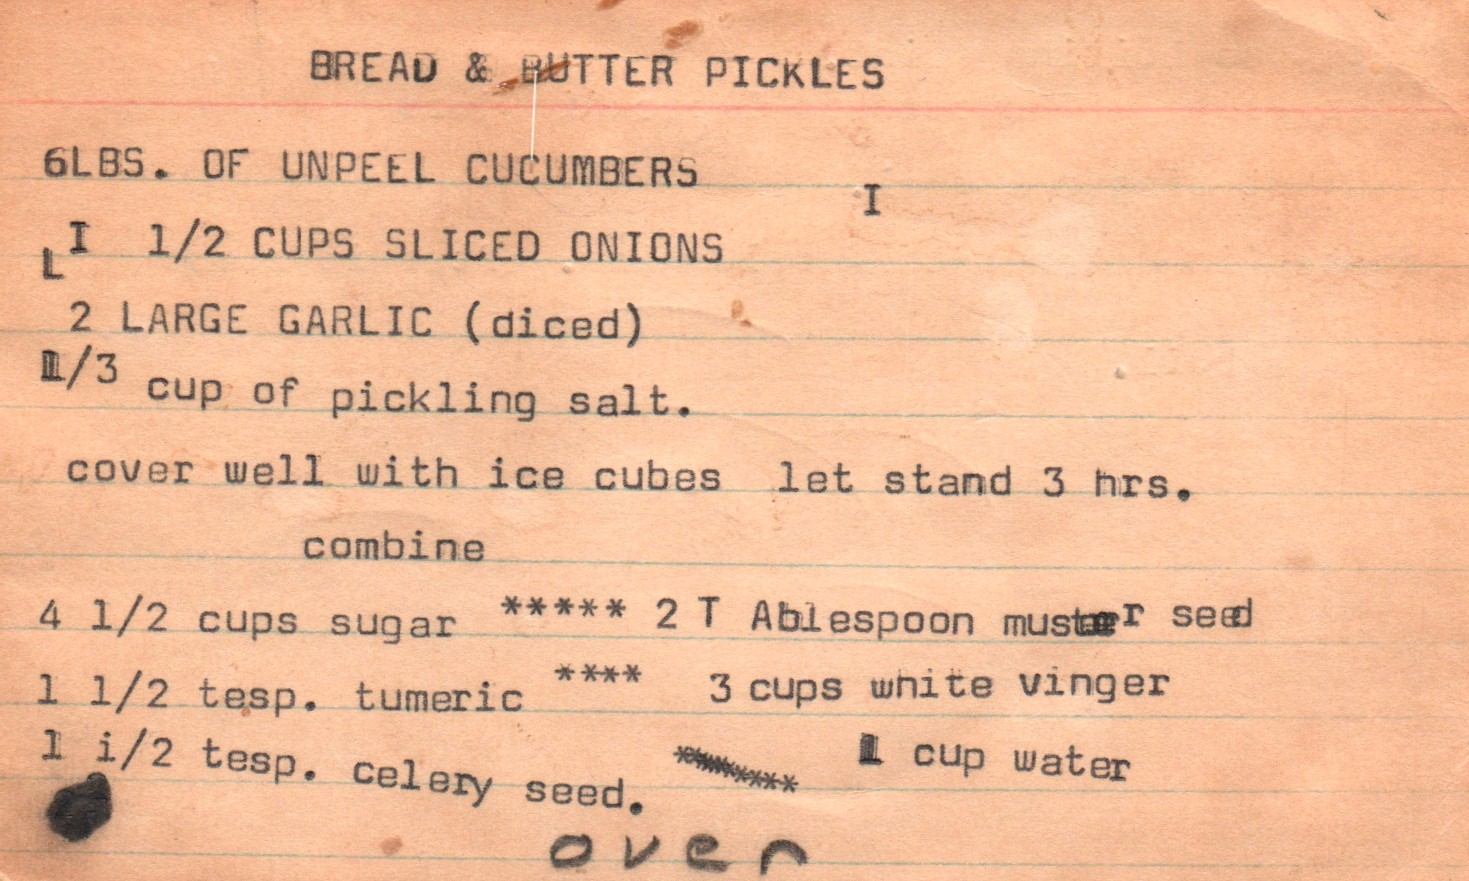 BREAD & BUTTER PICKLES
6LBS. OF UNPEEL CUCUMBERS
I
I 1/2 CUPS SLICED ONIONS
L
2 LARGE GARLIC (diced)
1/3 cup of pickling salt.
cover well with ice cubes let stand 3 hrs.
combine
4 1/2 cups sugar ***** 2 T Ablespoon muster seed
1 1/2 tesp. tumeric **** 3 cups white vinger
1 i/2 tesp. celery seed. ******** 1 cup water
over